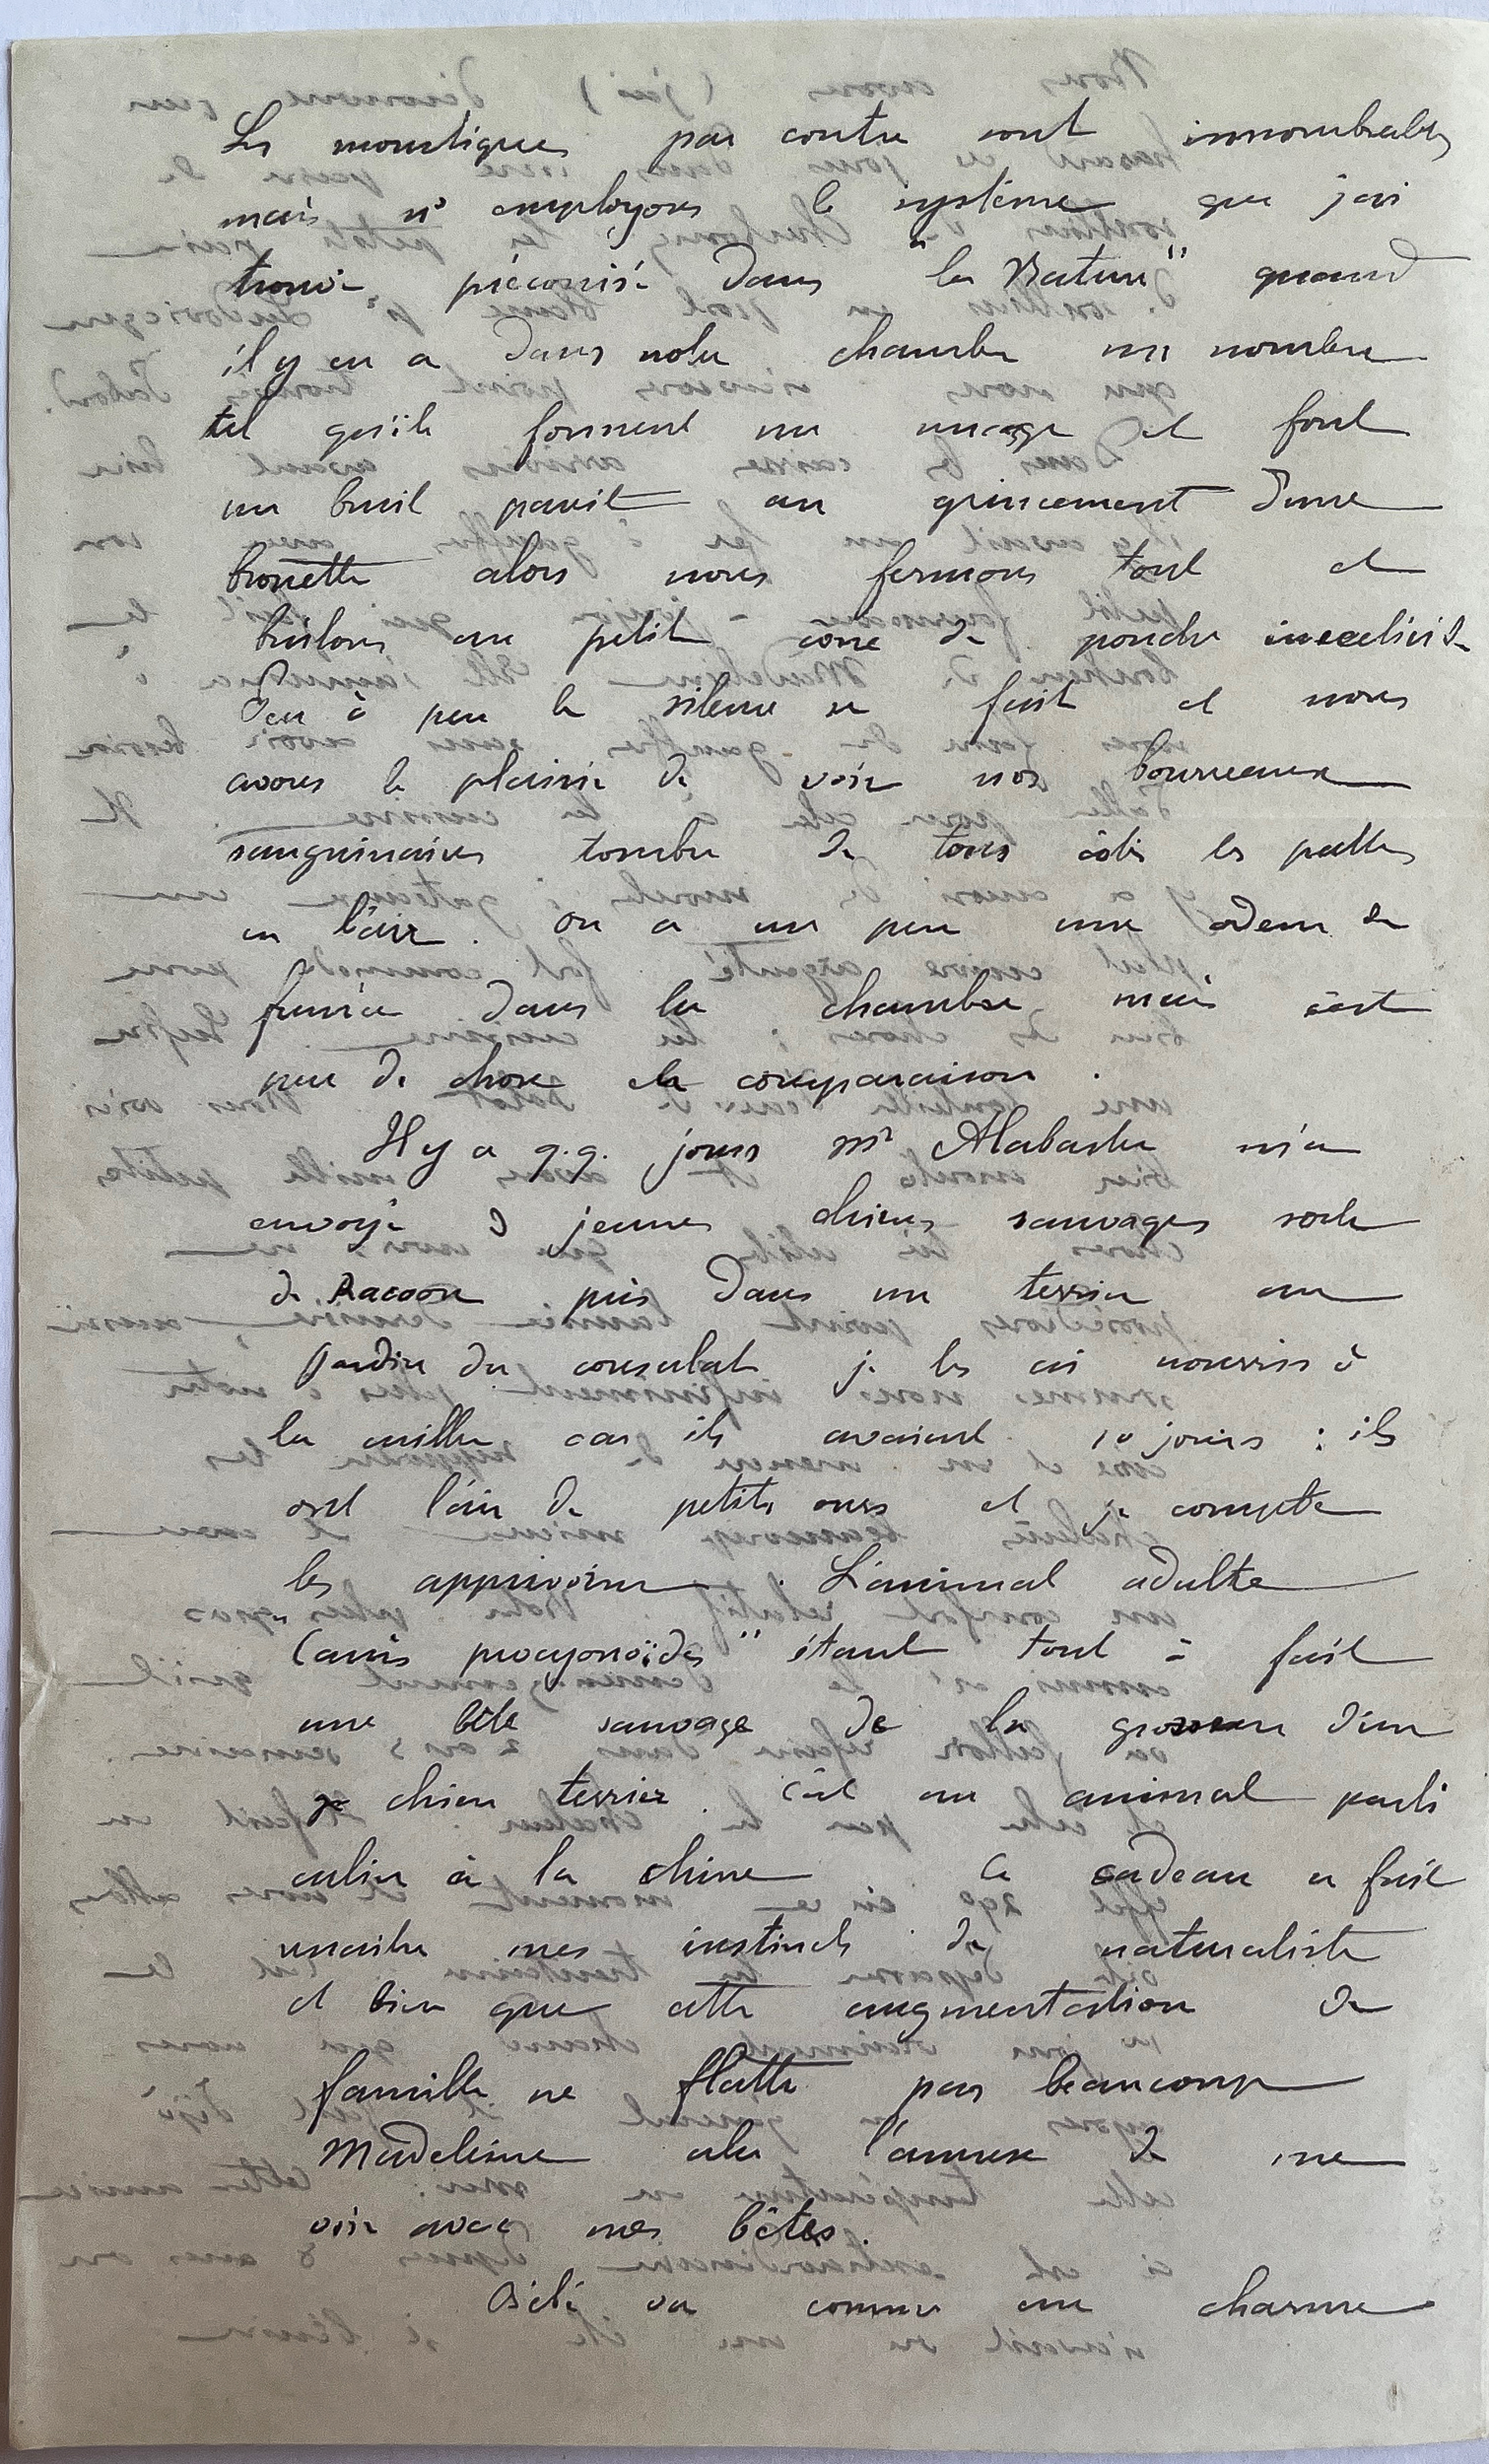 Les moustiques par contre sont innombrables
mais ns employons le système que j'ai
trouvé préconisé dans "la Nature" quand
il y en a dans notre chambre un nombre
tel qu'ils forment un nuage et font
un bruit pareil au grincement d'une
brouette alors nous fermons tout et
brûlons un petit cône de poudre insecticide
Peu à peu le silence se fait et nous
avons le plaisir de voir nos bourreaux
sanguinaires tomber de tous côtés les pattes
en l'air. On a un peu une odeur de
fumée dans la chambre mais c'est
peu de chose en comparaison.
Il y a q.q. jours Mr Alabaster m'a
envoyé 3 jeunes chiens sauvages sorte
de Racoon pris dans un terrier au
jardin du consulat je les ai nourris à
la cuiller car ils avaient 10 jours : ils
ont l'air de petits ours et je compte
les apprivoiser. L'animal adulte
"Canis procyonoïdes" étant tout à fait
une bête sauvage de la grosseur d'un
chien terrier. C'est un animal parti
culier à la Chine Ce cadeau a fait
renaître mes instincts de naturaliste
et bien que cette augmentation de
famille ne flatte pas beaucoup
Madeleine cela l'amuse de me
voir avec mes bêtes.
Bébé va comme un charme